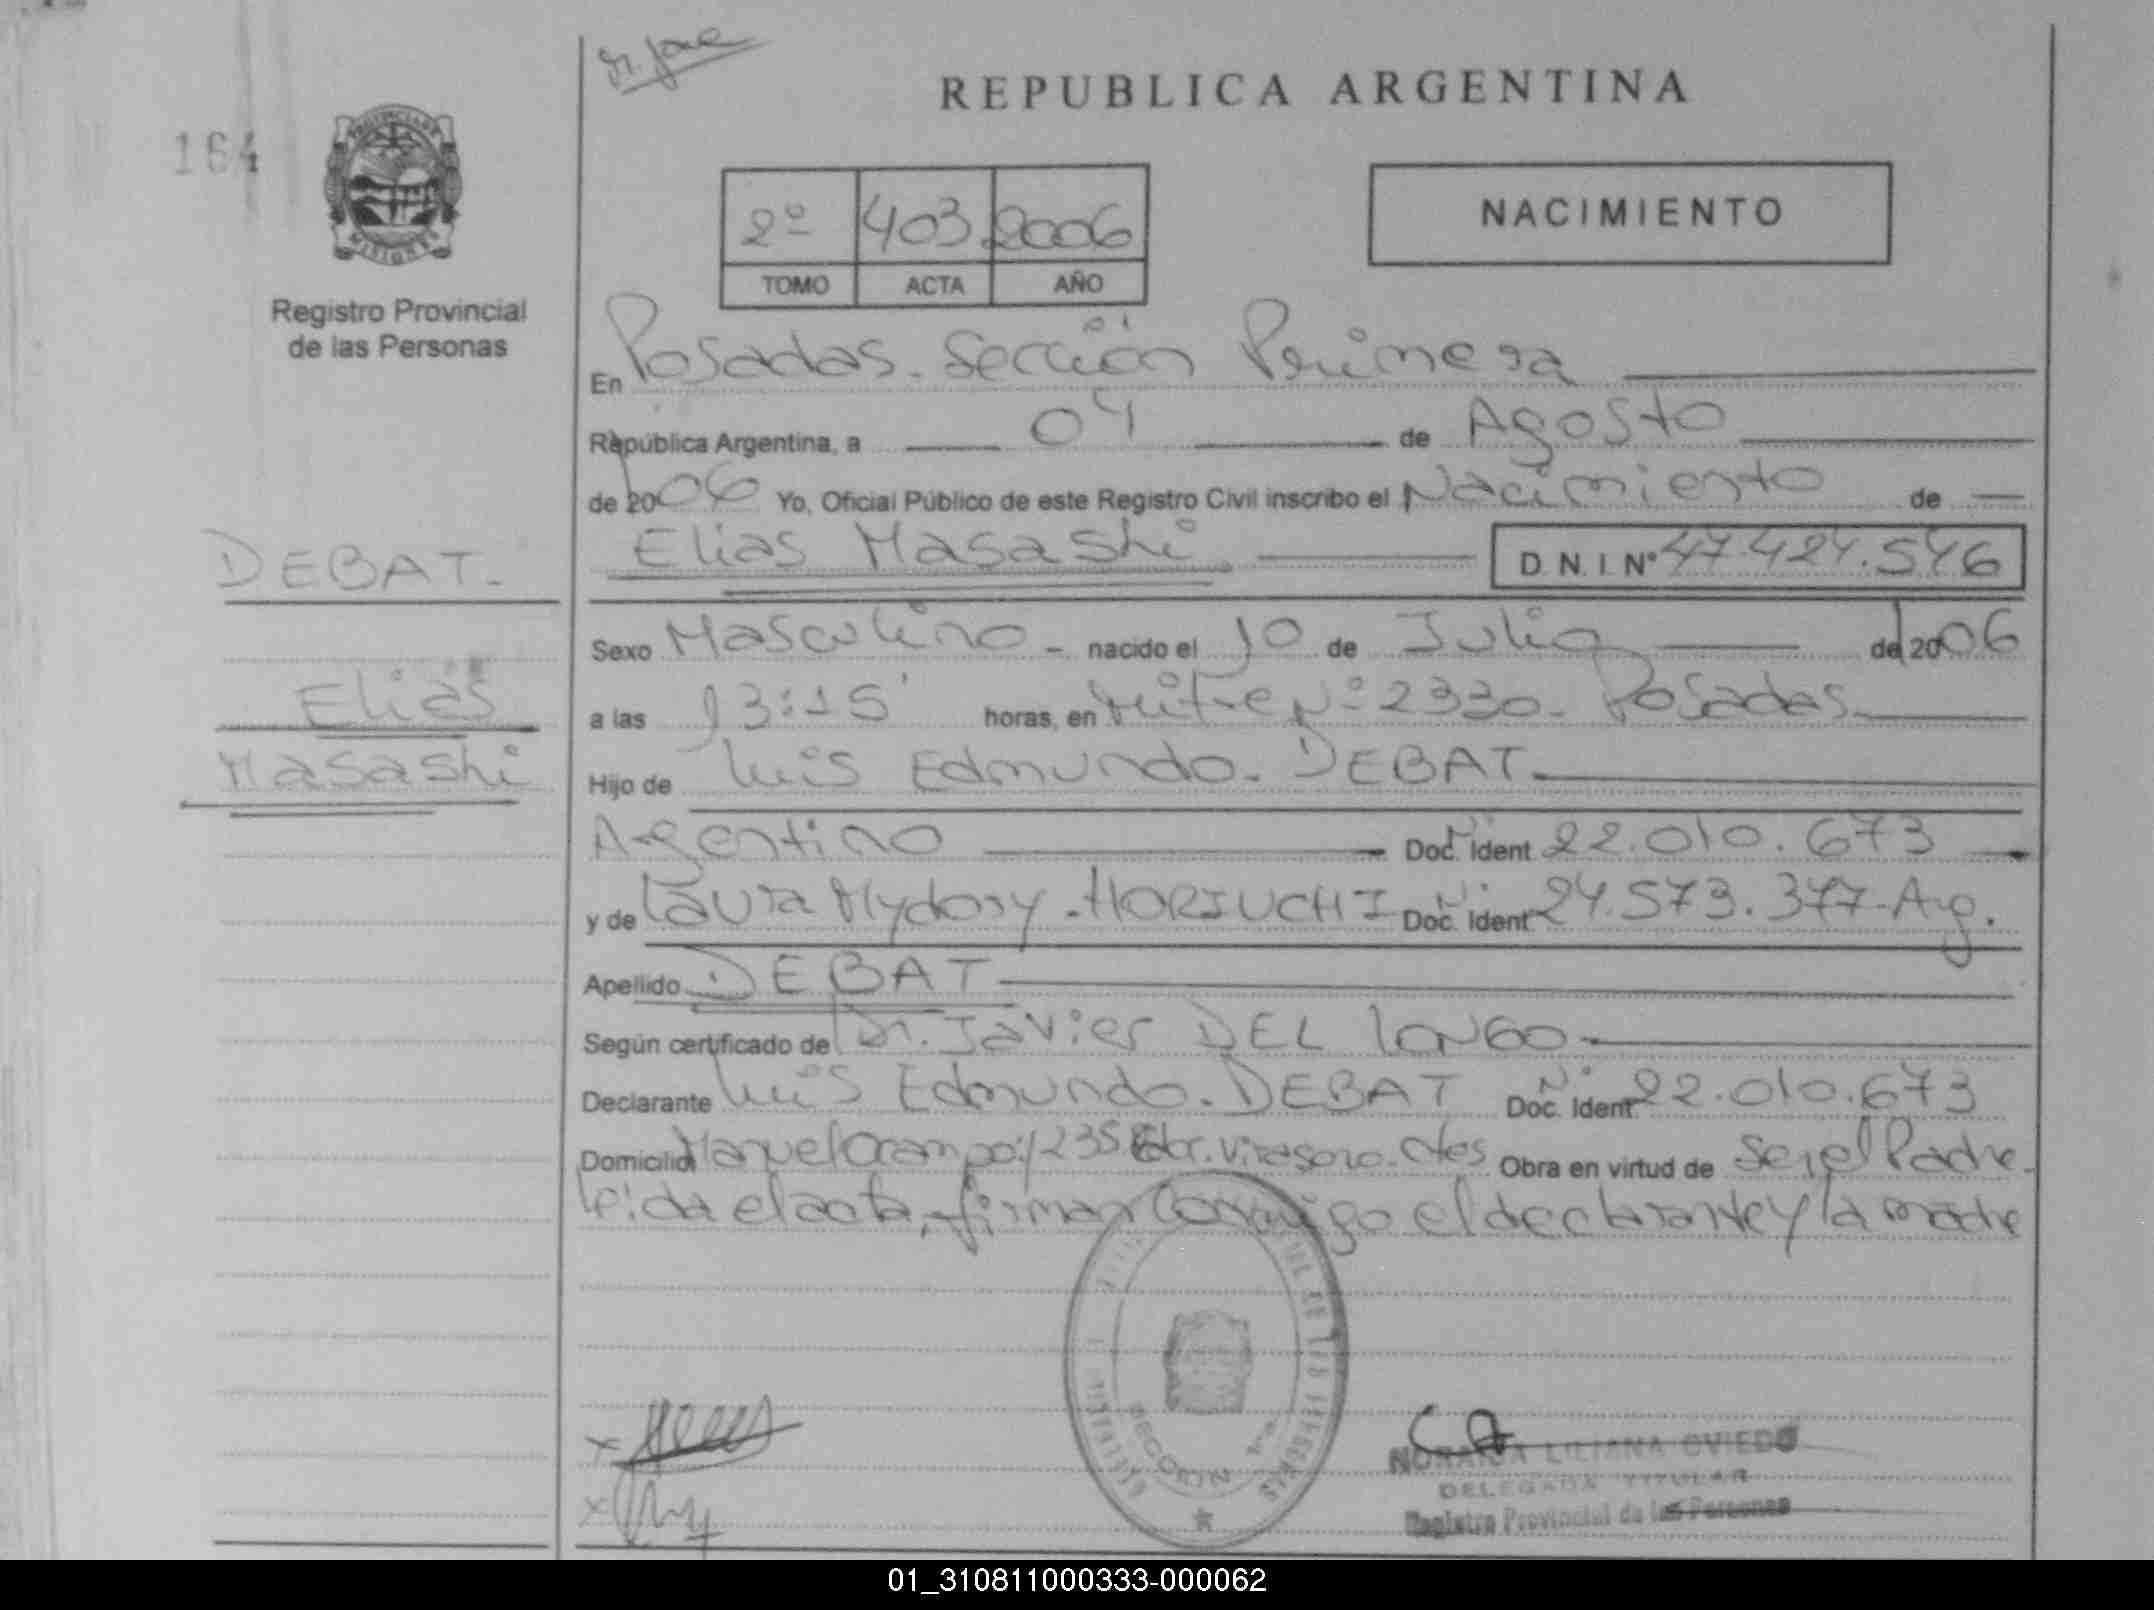 REPUBLICA ARGENTINA
164
PROVINCIA DE
MISIONES
Registro Provincial
de las Personas
2º 403 2006
TOMO ACTA AÑO
NACIMIENTO
En Posadas. Sección Primera
República Argentina, a 04 de Agosto
de 2006 Yo, Oficial Público de este Registro Civil inscribo el Nacimiento de
Elias Masashi D.N.I Nº 47.424.546
DEBAT.
Elias
Masashi
Sexo Masculino - nacido el 10 de Julio de 2006
a las 13:15 horas, en Mitre Nº 2330. Posadas
Hijo de Luis Edmundo. DEBAT.
Argentino Doc. Ident. Nº 22.010.673
y de Laura Mydory. HORIUCHI Doc. Ident. Nº 24.573.377-Arg.
Apellido DEBAT
Según certificado de Dr. Javier DEL LONGO
Declarante Luis Edmundo. DEBAT Doc. Ident. Nº 22.010.673
Domicilio Virasoro. Ctes Obra en virtud de Ser el Padre.
Leida el acta, firman conmigo el declarante y la madre
SECCION 1ª
LILIANA OVIEDO
DELEGADA TITULAR
Registro Provincial de las Personas
01_310811000333-000062